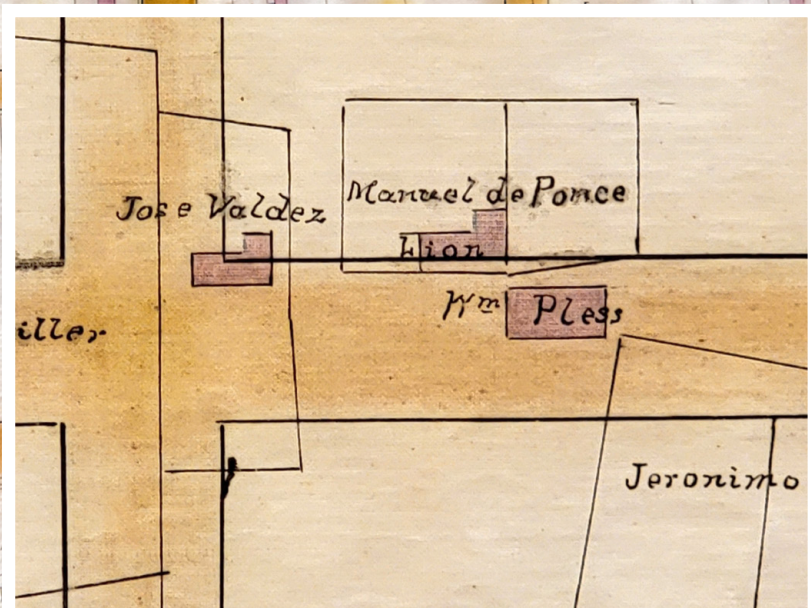 Jose Valdez
Manuel de Ponce
Lion
Wm Pless
iller
Jeronimo